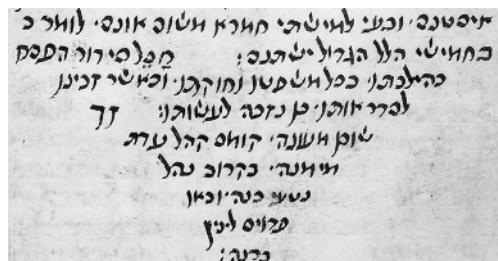 איסטנס· ובעי למישתי חמרא משום אונס· לומר כ
בחמישי הלל הגדול ישתנס: חסל סידור הפסח
כהילכתו· ככל משפטו וחוקתו· וכאשר זכינו
לסדר אותו· כן נזכה לעשותו: זך
שוכן מעונה· קומם קהל עדת
מי מנה· בקרוב נהל
נטעי כנה·
פדוים לציון
ברנה: